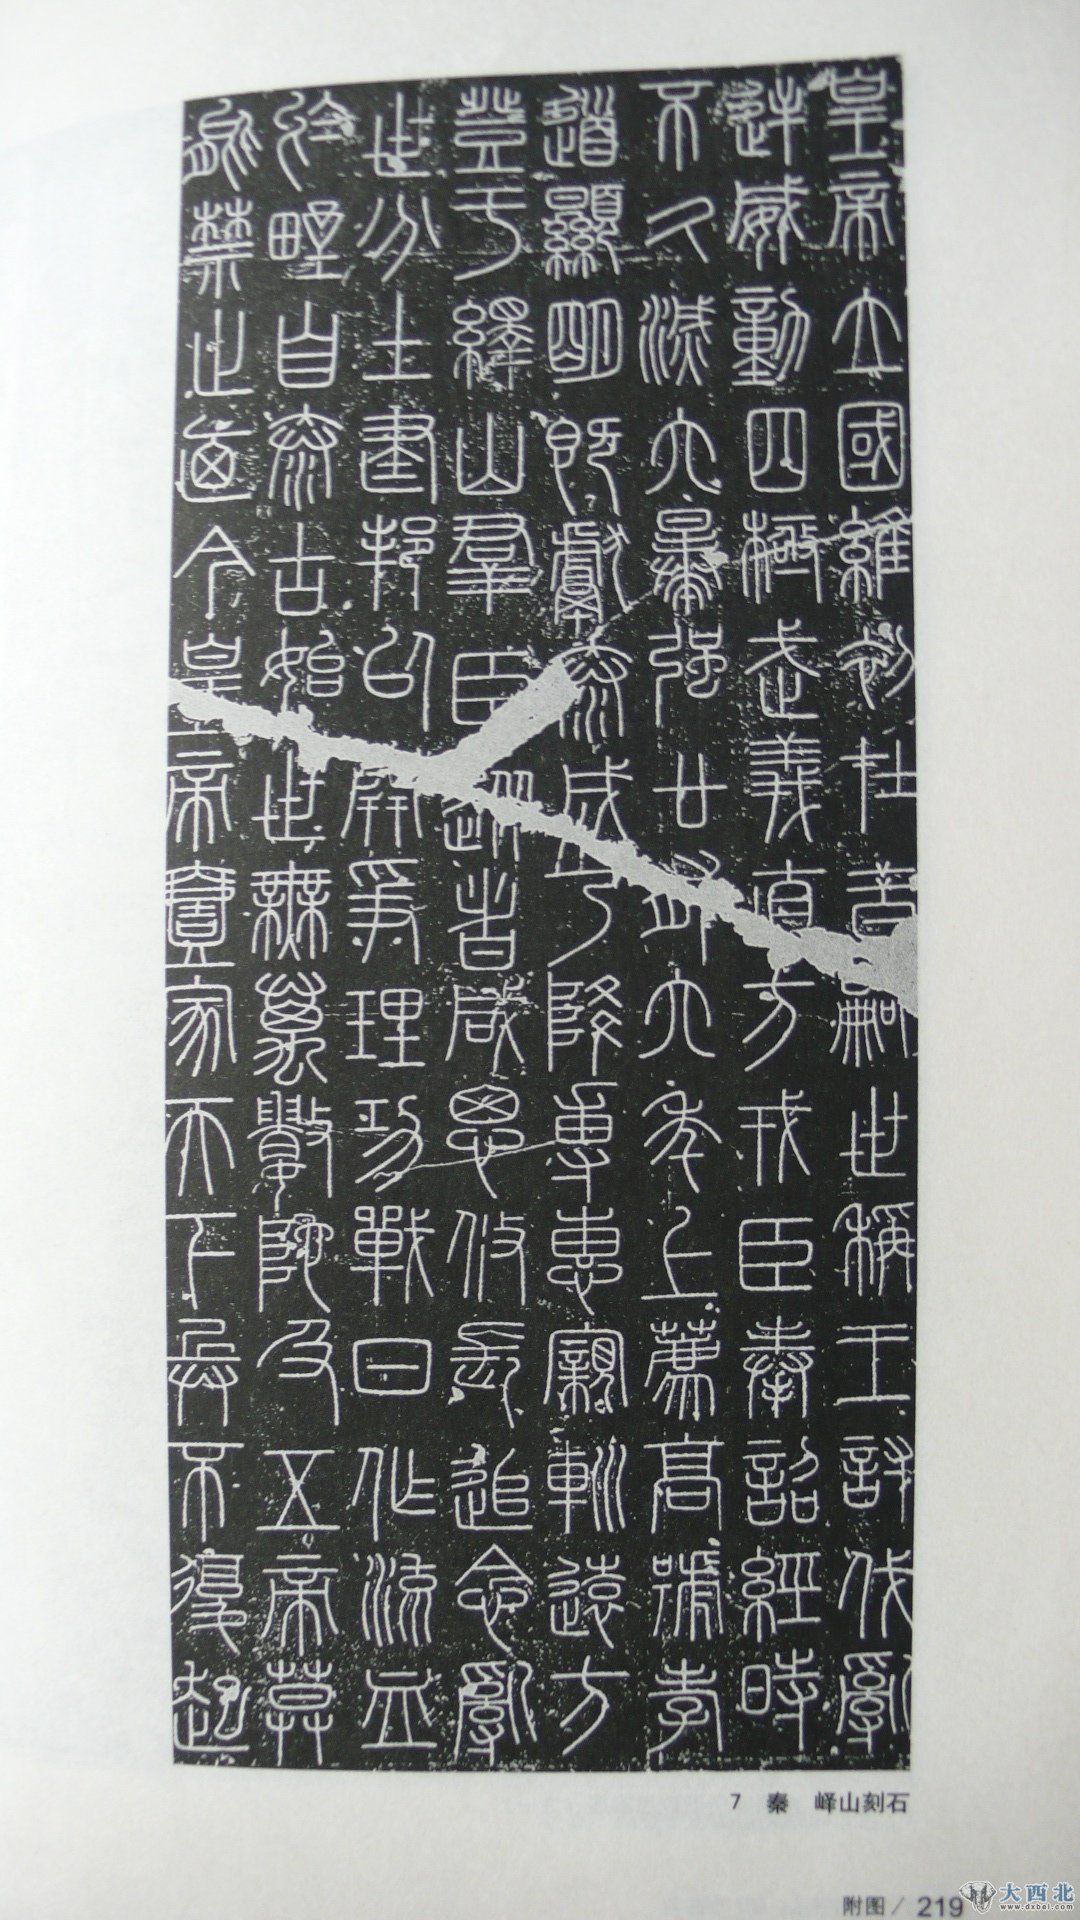 皇帝立國維初在昔嗣世稱王討伐亂
逆威動四極武義直方戎臣奉詔經時
不久滅六暴強廿有六年上薦高號孝
道顯明既獻泰成乃降專惠親巡遠方
登于繹山群臣從者咸思攸長追念亂
世分土建邦以開爭理功戰日作流血
於野自泰古始世無萬數陀及五帝莫
能禁止迺今皇帝壹家天下兵不復起
7 秦 峄山刻石
附图 / 219
大西北
www.dxbei.com